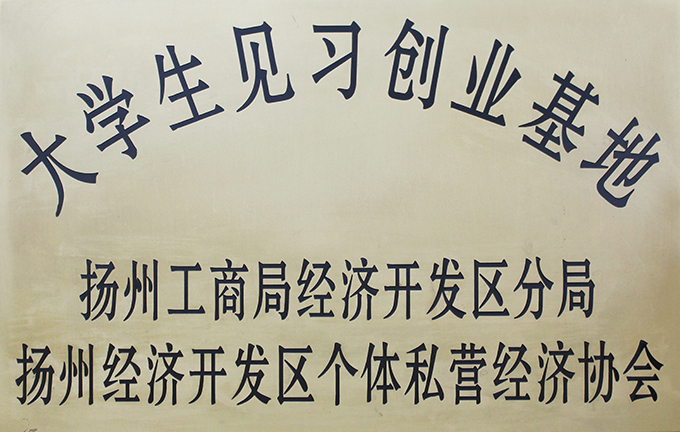 大学生见习创业基地
扬州工商局经济开发区分局
扬州经济开发区个体私营经济协会